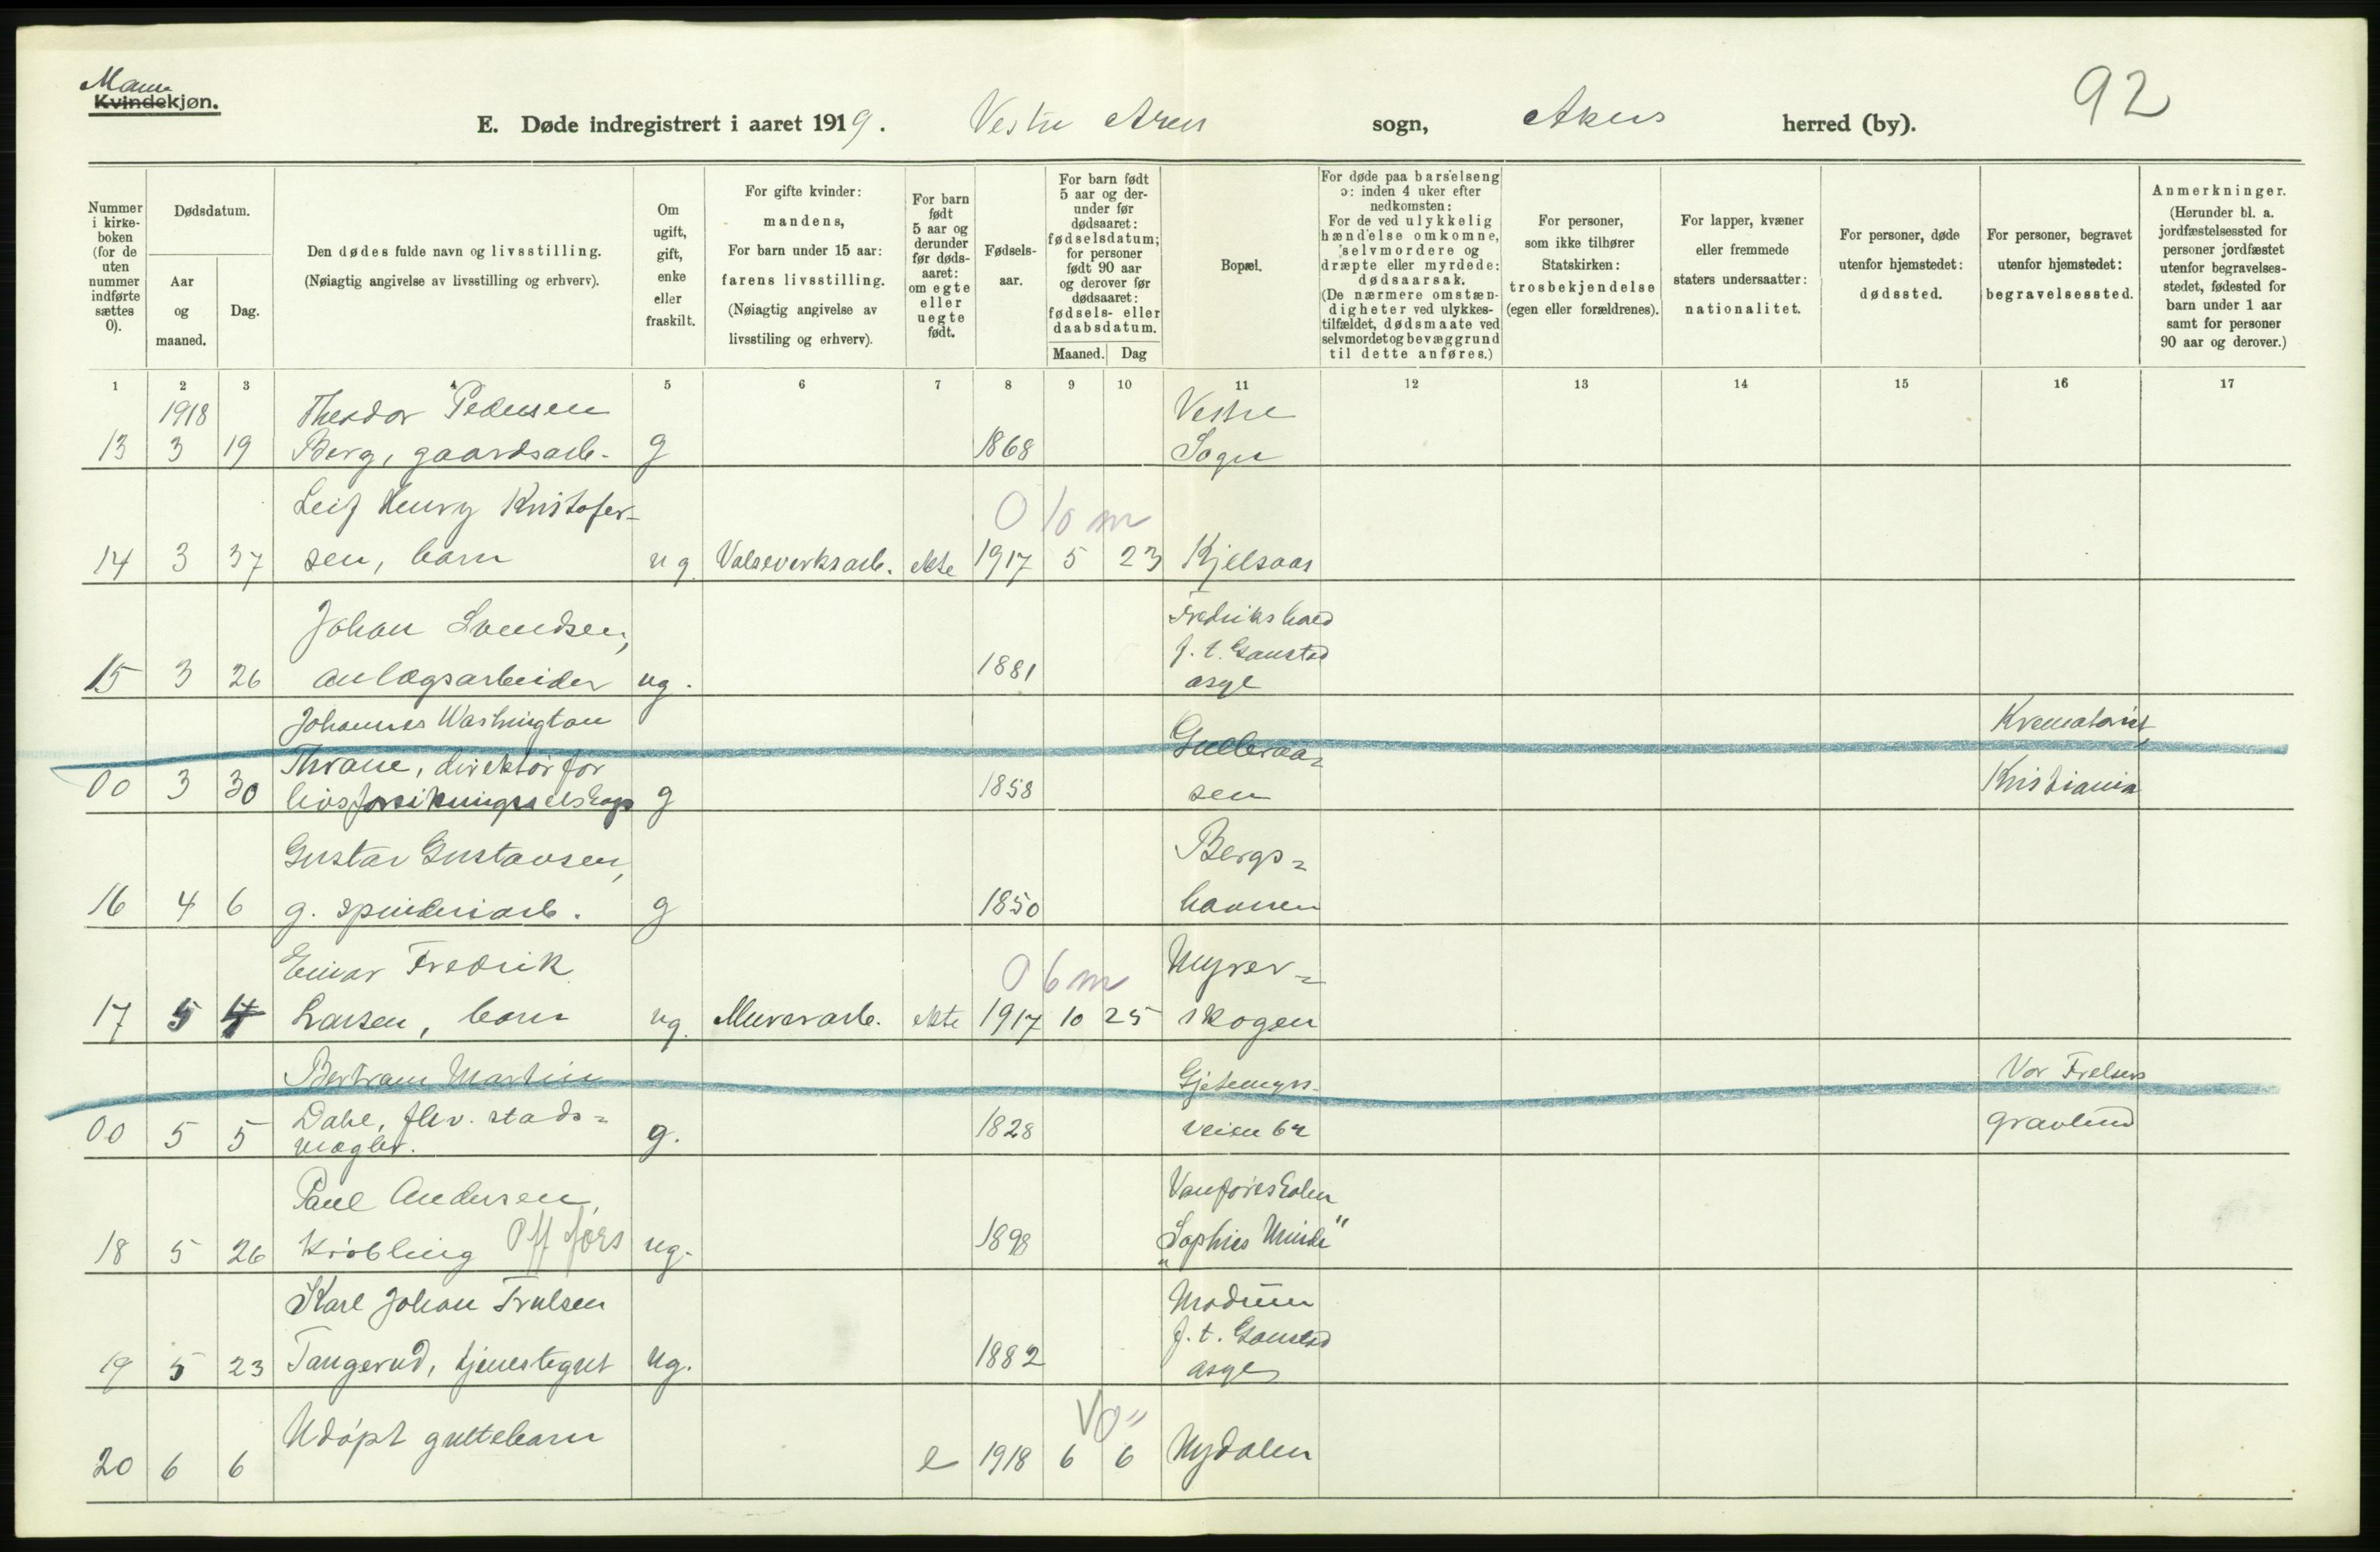 Mann
Kvindekjøn.
E. Døde indregistrert i aaret 1919. Vestre Aker sogn, Akers herred (by).
92
Nummer i kirke-boken (for de uten nummer indførte sættes 0).
Dødsdatum.
Aar og maaned.
Dag.
Den dødes fulde navn og livsstilling.
(Nøiagtig angivelse av livsstilling og erhverv).
Om ugift, gift, enke eller fraskilt.
For gifte kvinder: mandens,
For barn under 15 aar: farens livsstilling.
(Nøiagtig angivelse av livsstiling og erhverv).
For barn født 5 aar og derunder før døds-aaret: om egte eller uegte født.
Fødsels-aar.
For barn født 5 aar og der-under før dødsaaret: fødselsdatum; for personer født 90 aar og derover før dødsaaret: fødsels- eller daabsdatum.
Maaned. Dag
Bopæl.
For døde paa barselseng ɔ: inden 4 uker efter nedkomsten:
For de ved ulykkelig hændelse omkomne, selvmordere og dræpte eller myrdede: dødsaarsak.
(De nærmere omstæn-digheter ved ulykkes-tilfældet, dødsmaate ved selvmordet og bevæggrund til dette anføres.)
For personer, som ikke tilhører Statskirken: trosbekjendelse (egen eller forældrenes).
For lapper, kvæner eller fremmede staters undersaatter: nationalitet.
For personer, døde utenfor hjemstedet: dødssted.
For personer, begravet utenfor hjemstedet: begravelsessted.
Anmerkninger.
(Herunder bl. a. jordfæstelsessted for personer jordfæstet utenfor begravelses-stedet, fødested for barn under 1 aar samt for personer 90 aar og derover.)
1 2 3 4 5 6 7 8 9 10 11 12 13 14 15 16 17
1918 Theodor Pedersen Vestre
13 3 19 Berg, gaardsarb. g 1868 Sogn
Leif Henry Kristofer- 0 10 m
14 3 37 sen, barn ug Valseverksarb. ekte 1917 5 23 Kjelsaas
Johan Svendsen, Fredrikshald
f. t. Gaustad
15 3 26 anlægsarbeider ug. 1881 asyl
Johannes Washington Gulleraa= Krematoriet,
Thrane, direktør for
00 3 30 livsforsikringsselskap g 1858 sen Kristiania
Gustav Gustavsen, Bergs=
16 4 6 g. spinderiarb. g 1850 havnen
Einar Fredrik 0 6 m Myrer=
17 5 4 Larsen, barn ug. Murerarb. ekte 1917 10 25 skogen
Bertram Martin Gjetemyrs- Vor Frelsers
Dahl, fhv. stads=
00 5 5 mægler. g. 1828 veien 62 gravlund
Paul Andersen, Vanføreskolen
18 5 26 Krøbling Off fors ug. 1898 „Sophies Minde"
Karl Johan Trulsen Modum
f. t. Gaustad
19 5 23 Tangerud, tjenestegut ug. 1882 asyl
Udøpt guttebarn
20 6 6 e 1918 6 6 Nydalen